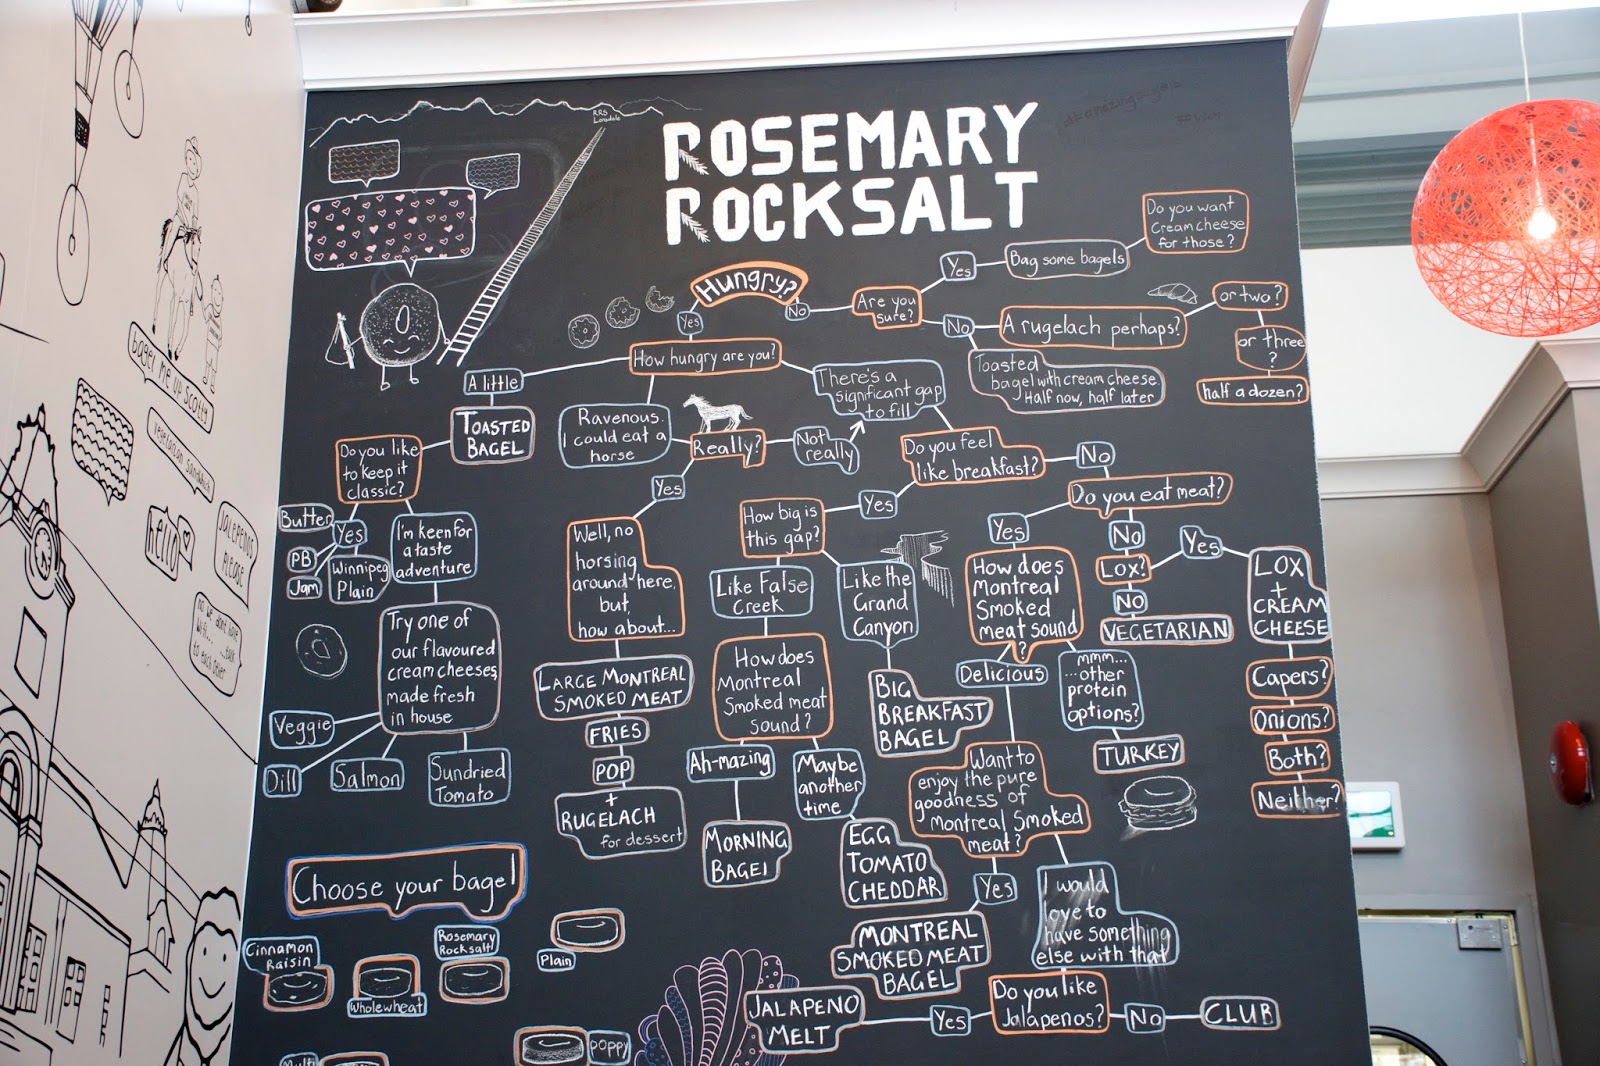 RRS
Lonsdale
ROSEMARY
ROCKSALT
Hungry?
Yes
No
Are you
sure?
Yes
Bag some bagels
Do you want
Cream cheese
for those?
No
A rugelach perhaps?
or two?
or three
?
half a dozen?
Toasted
bagel with cream cheese
Half now, half later
How hungry are you?
A little
TOASTED
BAGEL
Do you like
to keep it
classic?
Yes
Butter
PB
Jam
Winnipeg
Plain
I'm keen for
a taste
adventure
Try one of
our flavoured
cream cheeses,
made fresh
in house
Veggie
Dill
Salmon
Sundried
Tomato
Ravenous.
I could eat a
horse
Really?
Not
really
Yes
Well, no
horsing
around here,
but,
how about...
LARGE MONTREAL
SMOKED MEAT
FRIES
POP
+
RUGELACH
for dessert
There's a
significant gap
to fill
Do you feel
like breakfast?
Yes
How big is
this gap?
Like False
Creek
How does
Montreal
Smoked meat
sound?
Ah-mazing
MORNING
BAGEL
Maybe
another
time
EGG
TOMATO
CHEDDAR
Like the
Grand
Canyon
BIG
BREAKFAST
BAGEL
No
Do you eat meat?
Yes
How does
Montreal
Smoked
meat sound
?
Delicious
Want to
enjoy the pure
goodness of
Montreal Smoked
meat?
Yes
MONTREAL
SMOKED MEAT
BAGEL
I would
love to
have something
else with that
Do you like
Jalapenos?
Yes
JALAPENO
MELT
No
CLUB
mmm...
...other
protein
options?
TURKEY
No
Lox?
No
VEGETARIAN
Yes
LOX
+
CREAM
CHEESE
Capers?
Onions?
Both?
Neither?
Choose your bagel
Cinnamon
Raisin
Wholewheat
Rosemary
Rocksalt
Plain
Multi
poppy
bagel me up Scotty
vegetarian sandwich
hello
Jalepenos
Please
no we don't have
wifi...
...talk
to each other